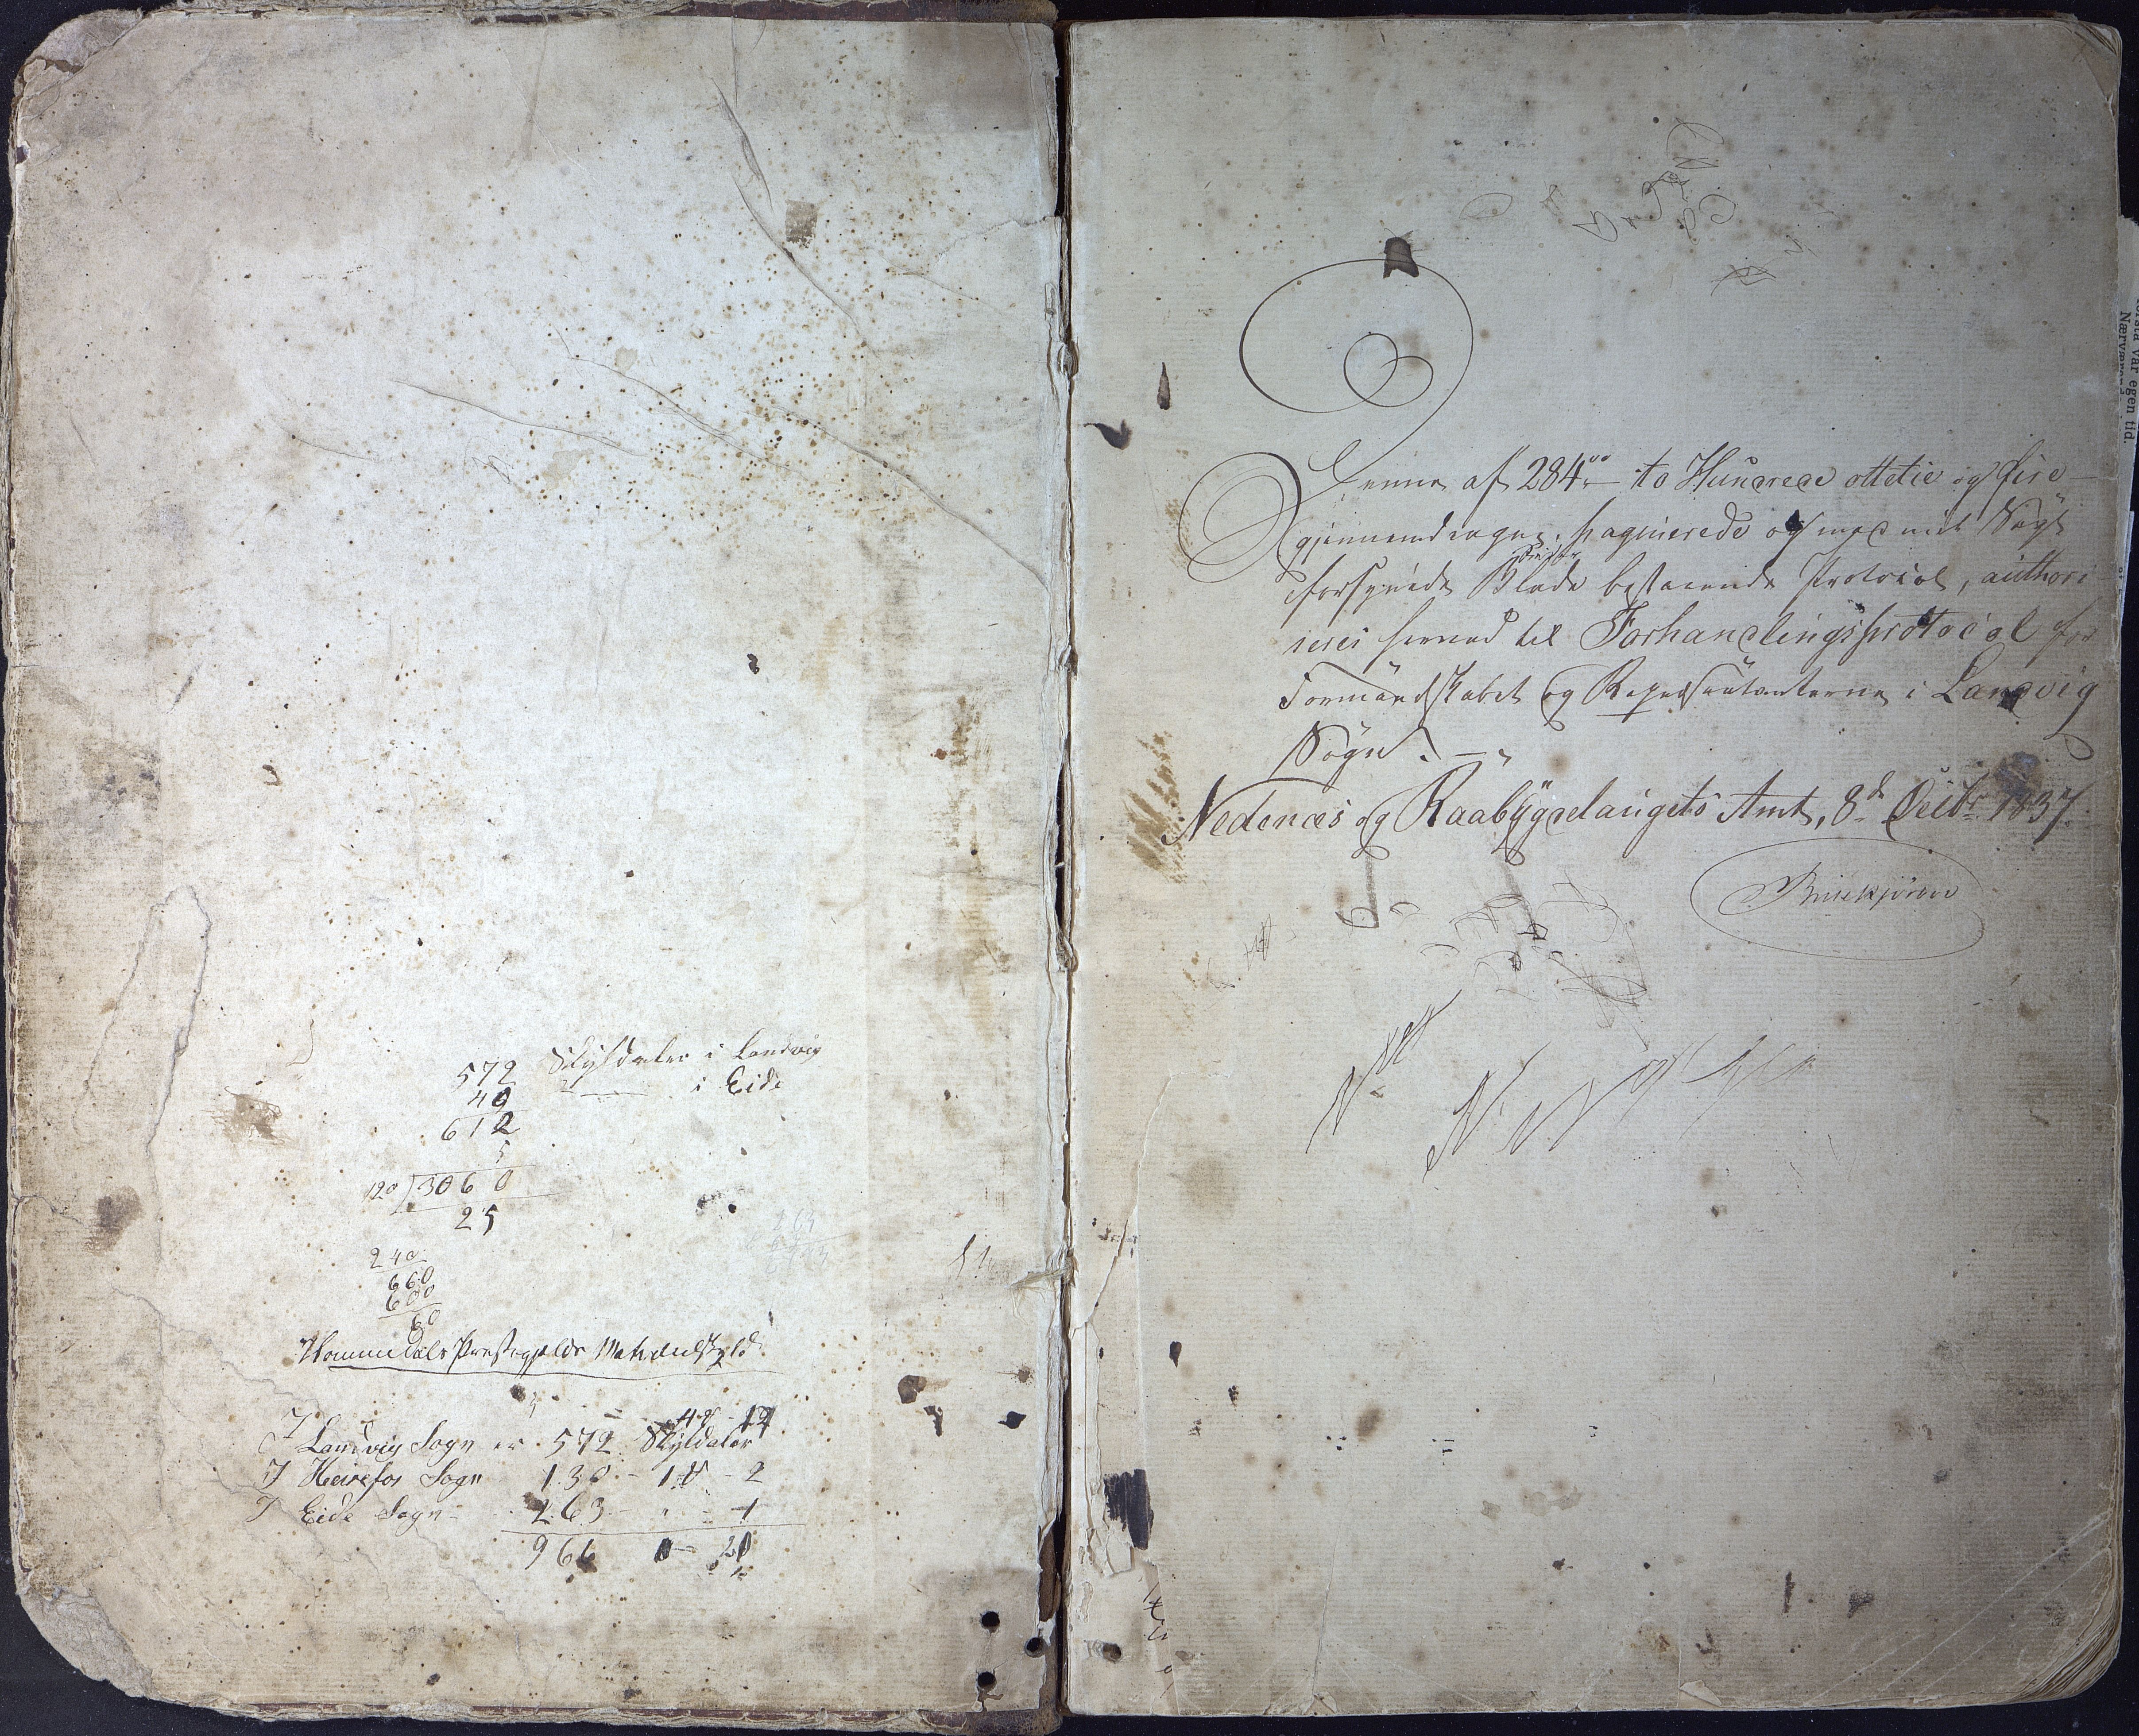 572 Skyldaler i Landvig
40 — i Eide
612
5
120 / 3060
25
240
660
600
60
Hommedals Præstegjelds Matrikulskyld
I Landvig Sogn er 572 Skyldaler 4 # 17
I Heirefos Sogn 130 - 1 # - 2
I Eide Sogn - 263 - " - 1
966
Denne af 284 - to Hundrede ottetie og fire -
gjennemdragne, paginerede og med mit Segl
forsynede Blade bestaaende Protocol, authori
seres herved til Forhandlingsprotocol for
Formandskabet og Repræsentanterne i Landvig
Sogn. —
Nedenæs og Raabygdelaugets Amt, 8de Decbr 1837.